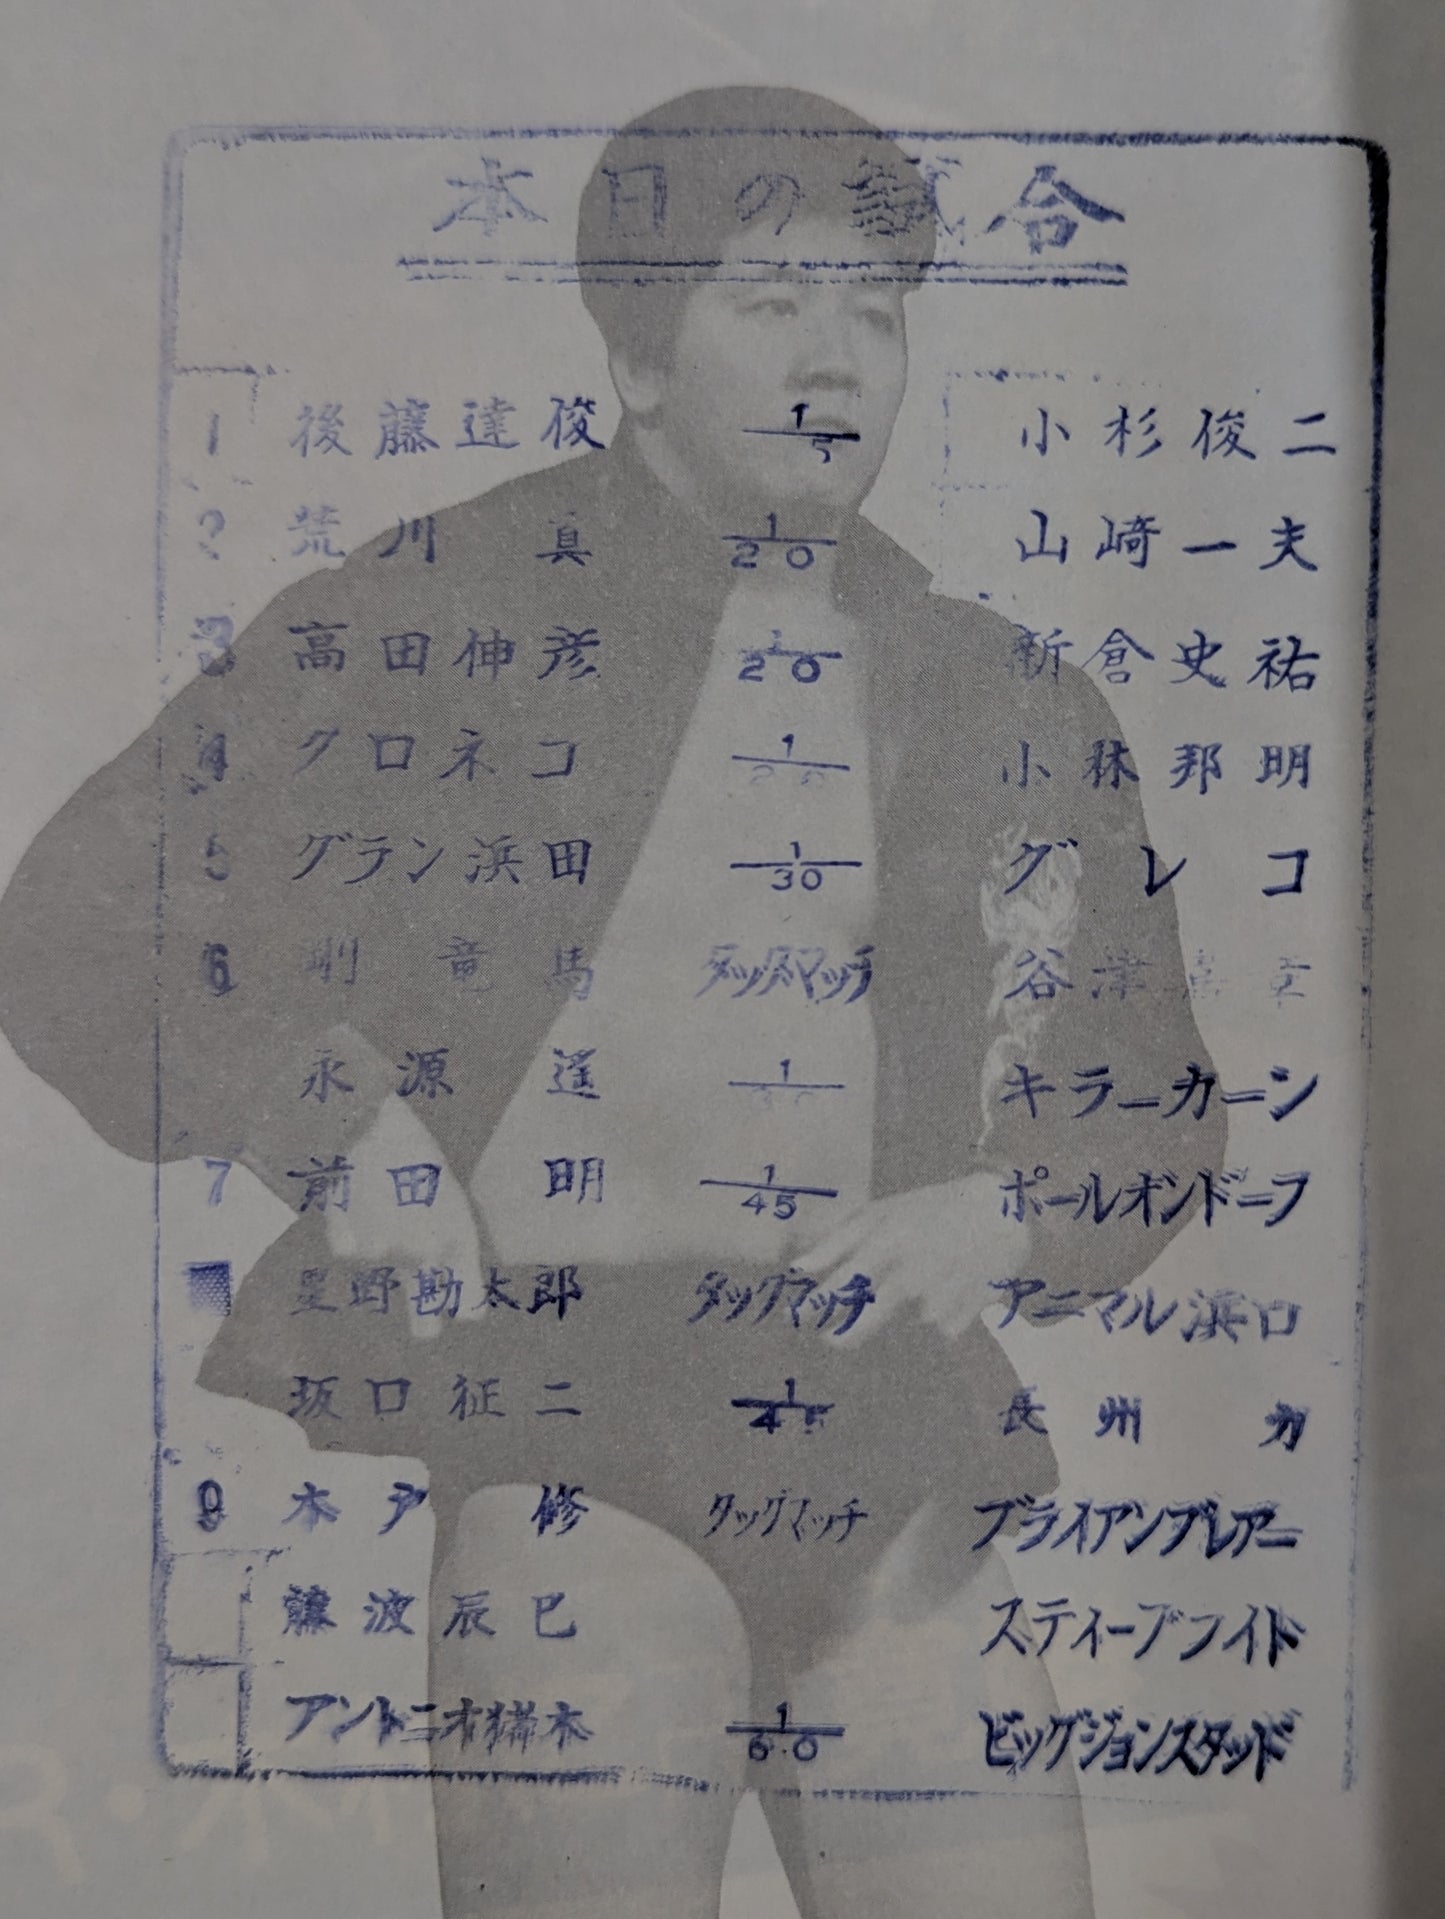 本日の試合
1 後藤達俊 1/5 小杉俊二
2 荒川真 1/20 山崎一夫
3 高田伸彦 1/20 新倉史祐
4 クロネコ 1/20 小林邦明
5 グラン浜田 1/30 グレコ
6 剛竜馬 タッグマッチ 谷津嘉章
永源遥 1/30 キラーカーン
7 前田明 1/45 ポールオンドーフ
星野勘太郎 タッグマッチ アニマル浜口
坂口征二 1/45 長州力
9 木戸修 タッグマッチ ブライアンブレアー
藤波辰巳 スティーブライト
アントニオ猪木 1/60 ビッグジョンスタッド